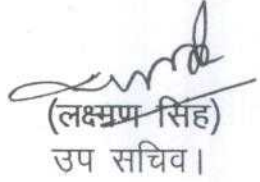 (लक्ष्मण सिंह)
उप सचिव।